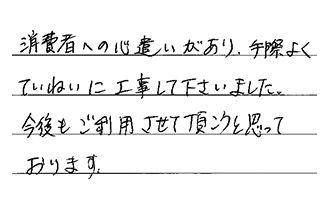 消費者への心遣いがあり、手際よく
ていねいに工事して下さいました。
今後もご利用させて頂こうと思って
おります。